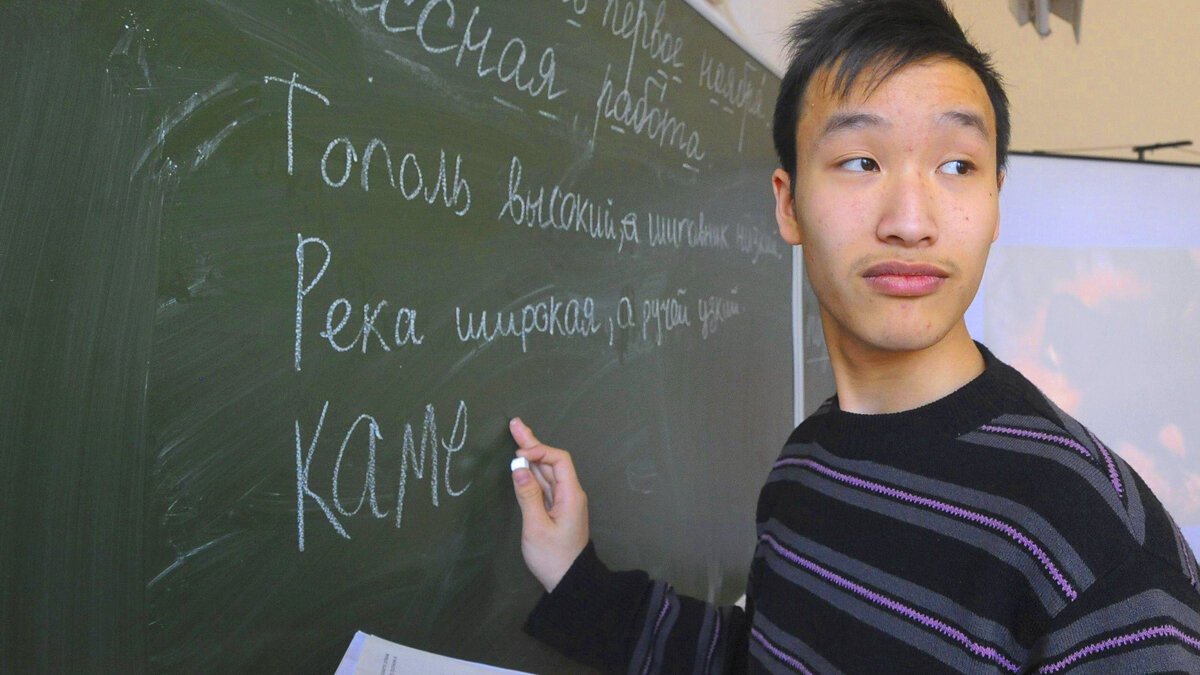 ь первое ноября.
ссная работа
Тополь высокий, а шиповник низкий
Река широкая, а ручей узкий.
Каме